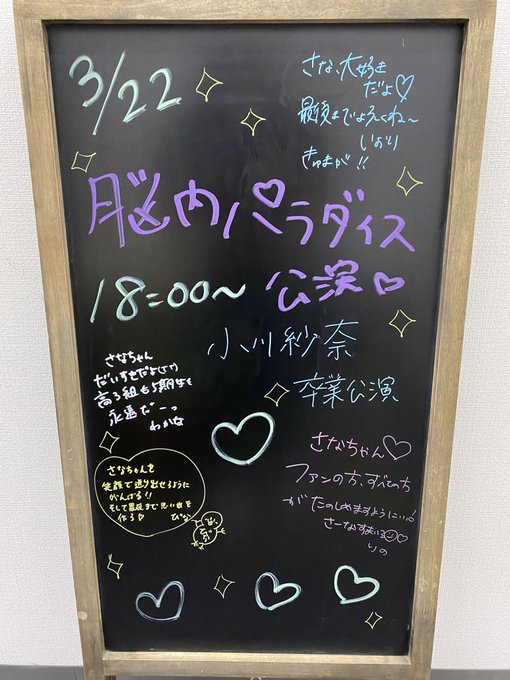 3/22
さな、大好き
だよ♡
最後までよろしくね〜
いおり
きゅまが!!
脳内パラダイス
18:00〜 公演♡
小川紗奈
卒業公演
さなちゃん
だいすきだよ
高3組も5期生も
永遠だーっ
わかな
さなちゃんを
笑顔で送り出せるように
がんばる!!
そして最後まで思い出を
作る♡
ぴな
さなちゃん♡
ファンの方、すべての方
がたのしめますように!
りの